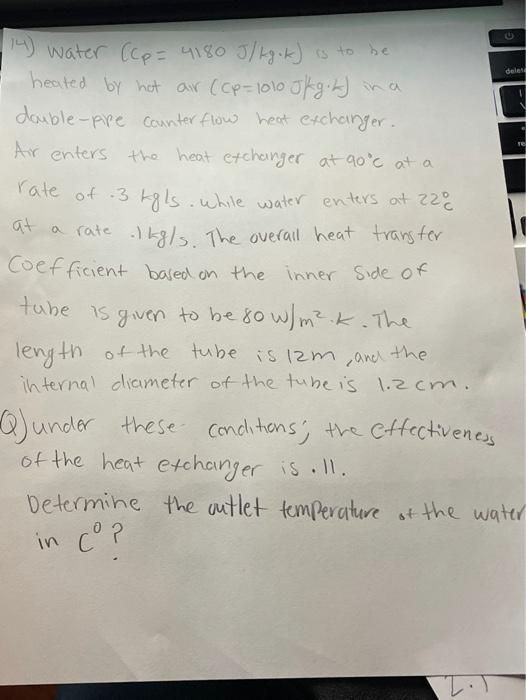 14) Water (Cp = 4180 J/kg.k) is to be
heated by hot air (Cp=1010 J/kg.k) in a
double-pipe counter flow heat exchanger.
Air enters the heat exchanger at 90°c at a
rate of .3 kg/s. while water enters at 22°c
at a rate .1 kg/s. The overall heat transfer
Coefficient based on the inner side of
tube is given to be 80 W/m².k. The
length of the tube is 12m, and the
internal diameter of the tube is 1.2 cm.
Q) under these conditions; the effectiveness
of the heat exchanger is .11.
Determine the outlet temperature of the water
in C°?
delete